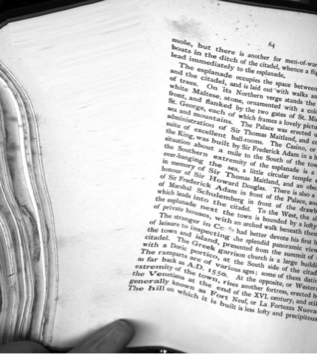 64
mole, but there is another for men-of-war
boats in the ditch of the citadel, whence a
lead immediately to the esplanade.
The esplanade occupies the space between
and the citadel, and is laid out with walks
of trees. On its Northern verge stands the
white Maltese, stone, ornamented with a
front, and flanked by the two gates of St. M
St. George, each of which frames a lovely
sea and mountains. The Palace was erected
administration of Sir Thomas Maitland, and
suits of excellent ball-rooms. The Casino, or
the King, was built by Sir Frederick Adam in a
situation about a mile to the South of the
the Southern extremity of the esplanade is a
over-hanging the sea, a little circular temple
in memory of Sir Thomas Maitland, and an
honour of Sir Howard Douglas. There is also a
of Sir Frederick Adam in front of the Palace,
of Marshal Schulemberg in front of the
which leads into the citadel. To the West, the
the esplanade next the town is bounded by a
of private houses, with an arched walk beneath
The stranger in had better devote his first
of leisure to inspecting the splendid panoramic
the town and island, presented from the summit of
citadel. The Greek garrison church is a large
with a Doric portico, at the South side of the
The ramparts are of various ages; some of them
as far back as A.D. 1550. At the opposite, or Western
extremity of the town, rises another fortress, erected
the Venetians at the end of the XVI. century, and
generally known as Fort Neuf, or La Fortezza Nuova
The hill on which it is built is less lofty and